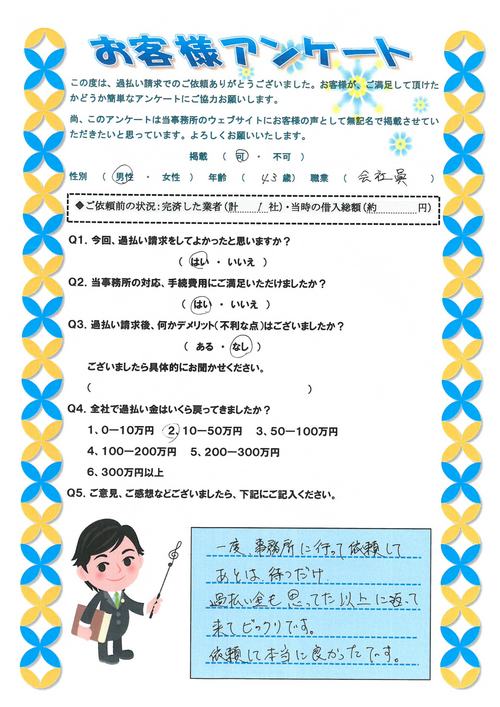 お客様アンケート
この度は、過払い請求でのご依頼ありがとうございました。お客様が、ご満足して頂けた
かどうか簡単なアンケートにご協力お願いします。
尚、このアンケートは当事務所のウェブサイトにお客様の声として無記名で掲載させてい
ただきたいと思っています。よろしくお願いいたします。
掲載 （ 可 ・ 不可 ）
性別 （ 男性 ・ 女性 ） 年齢 （ 43 歳） 職業 （ 会社員 ）
◆ご依頼前の状況：完済した業者（計 1 社）・当時の借入総額（約 円）
Q1. 今回、過払い請求をしてよかったと思いますか？
（ はい ・ いいえ ）
Q2. 当事務所の対応、手続費用にご満足いただけましたか？
（ はい ・ いいえ ）
Q3. 過払い請求後、何かデメリット（不利な点）はございましたか？
（ ある ・ なし ）
ございましたら具体的にお聞かせください。
（ ）
Q4. 全社で過払い金はいくら戻ってきましたか？
1、0－10万円 2、10－50万円 3、50－100万円
4、100－200万円 5、200－300万円
6、300万円以上
Q5. ご意見、ご感想などございましたら、下記にご記入ください。
一度、事務所に行って依頼して
あとは、待つだけ
過払い金も思ってた以上に返って
来てビックリです。
依頼して本当に良かったです。